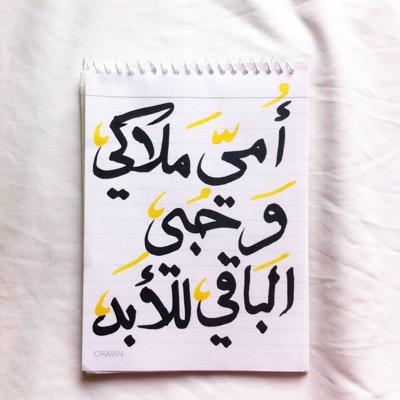 أُمّيَ مَلاكي
وَ حُبي
البَاقي للأبدَ
CRAWN